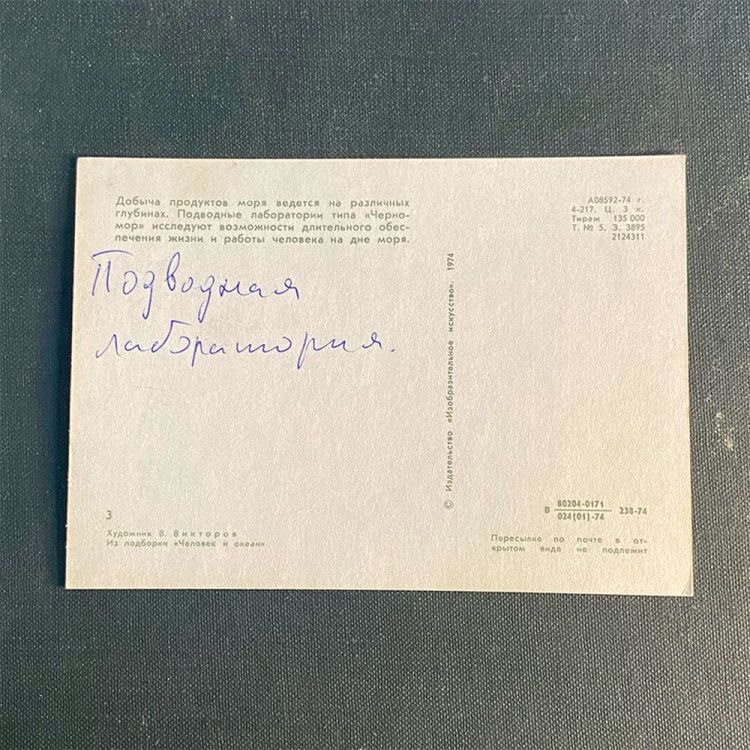 Добыча продуктов моря ведется на различных
глубинах. Подводные лаборатории типа «Черно-
мор» исследуют возможности длительного обес-
печения жизни и работы человека на дне моря.
Подводная
лаборатория.
3
Художник В. Викторов
Из подборки «Человек и океан»
© Издательство «Изобразительное искусство». 1974
А08592-74 г.
4-217. Ц. 3 к.
Тираж 135 000
Т. № 5. З. 3895
2124311
В 80204-0171
024(01)-74 238-74
Пересылке по почте в от-
крытом виде не подлежит